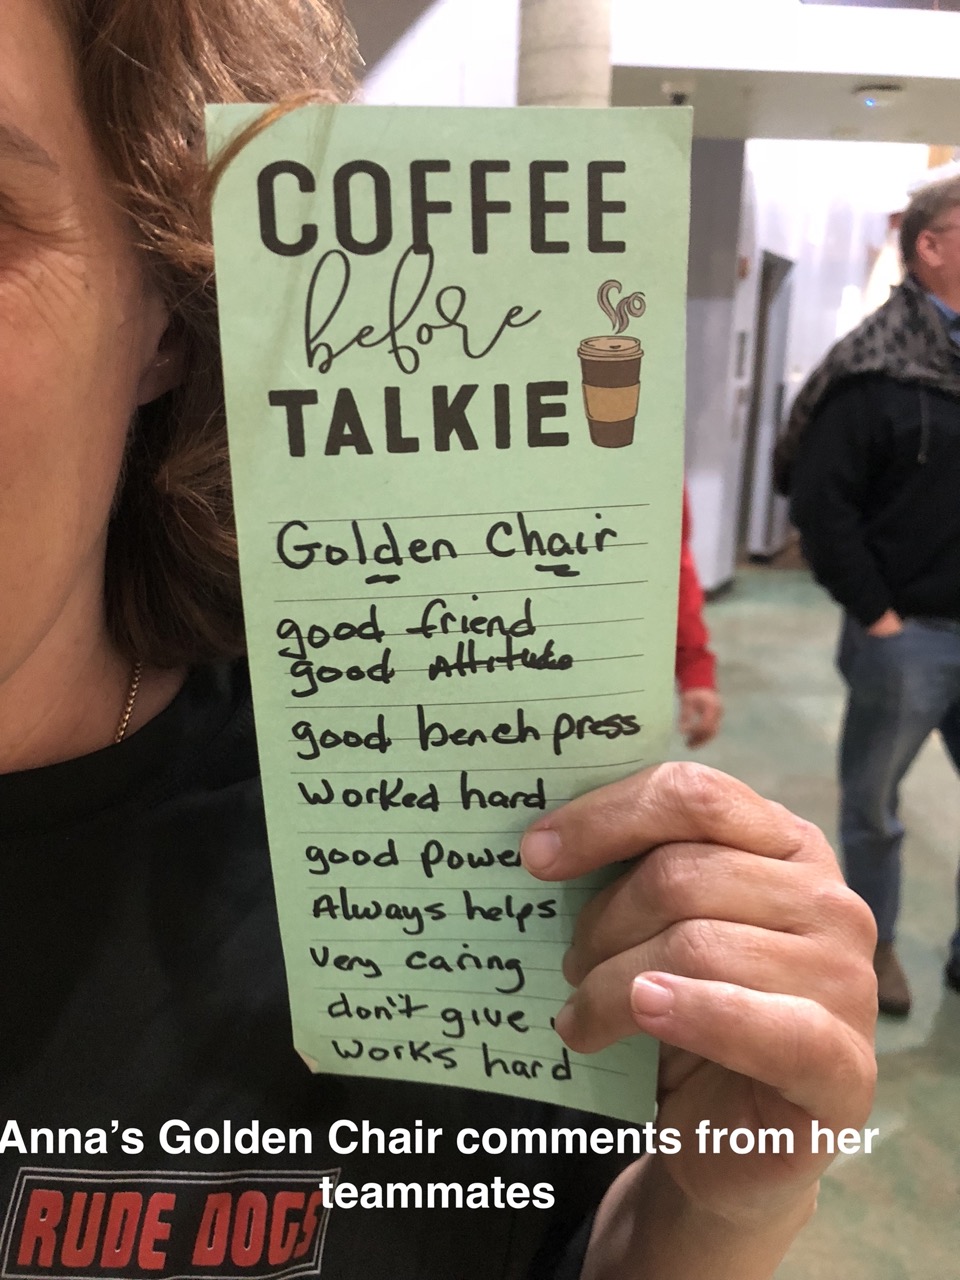 COFFEE
before
TALKIE
Golden Chair
good friend
good Attitude
good bench press
Worked hard
good Power
Always helps
very caring
don't give
works hard
Anna’s Golden Chair comments from her
teammates
RUDE DOGS